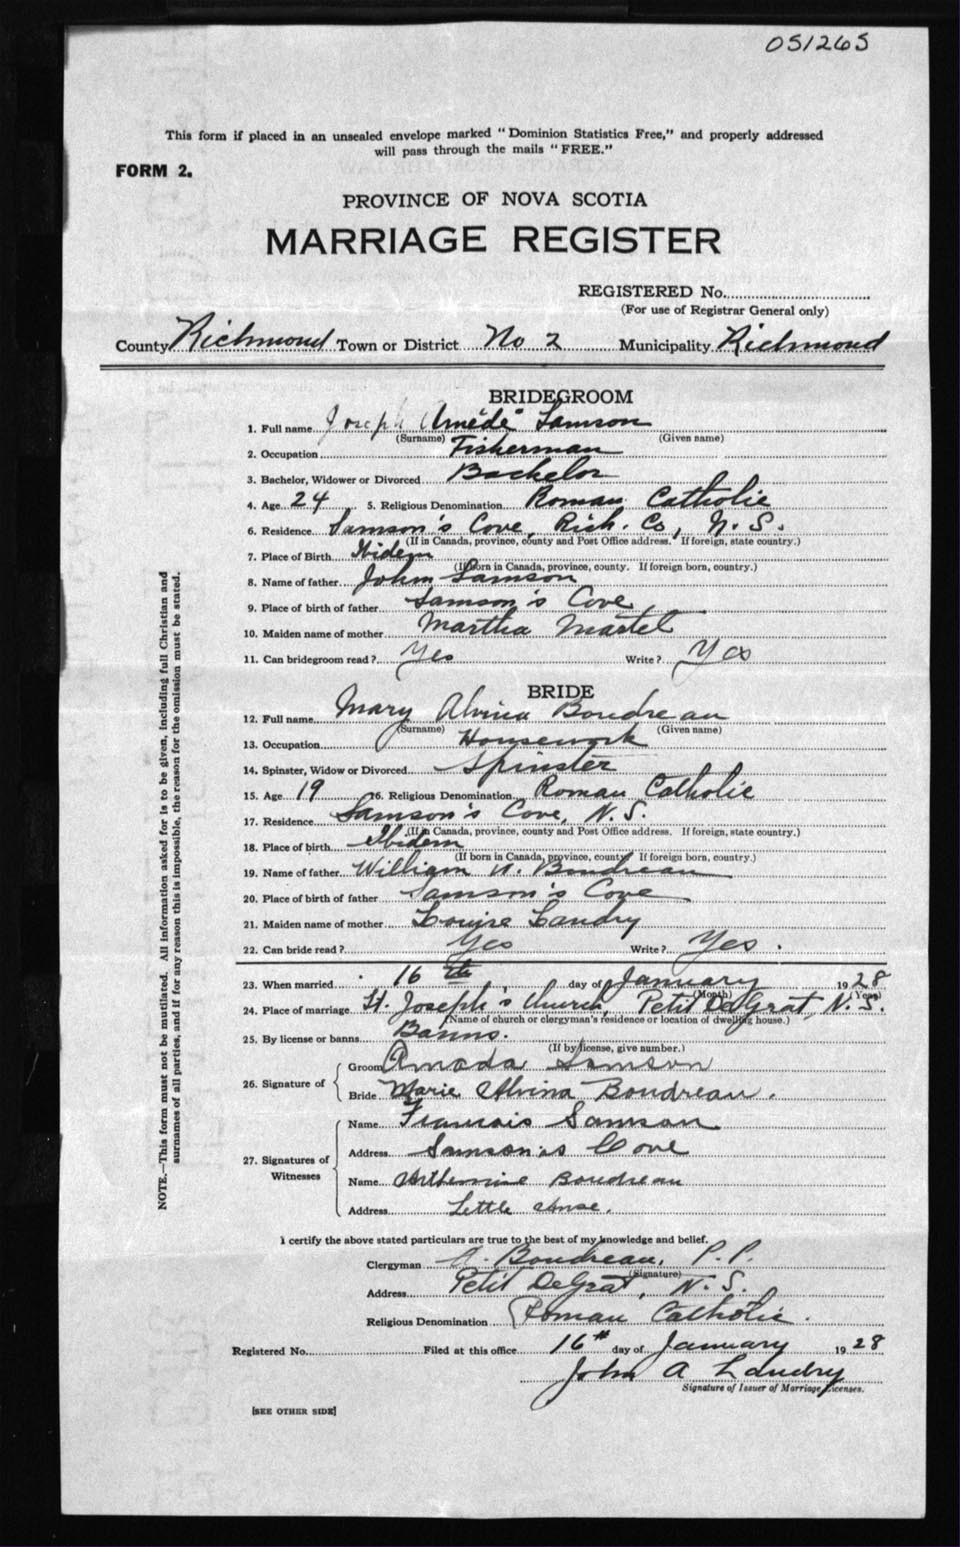 051265
This form if placed in an unsealed envelope marked "Dominion Statistics Free," and properly addressed
will pass through the mails "FREE."
FORM 2.
PROVINCE OF NOVA SCOTIA
MARRIAGE REGISTER
REGISTERED No.
(For use of Registrar General only)
County Richmond Town or District No 2 Municipality Richmond
BRIDEGROOM
1. Full name Joseph Amédé Samson
(Surname) (Given name)
2. Occupation Fisherman
3. Bachelor, Widower or Divorced Bachelor
4. Age 24 5. Religious Denomination Roman Catholic
6. Residence Samson's Cove, Rich. Co, N. S.
(If in Canada, province, county and Post Office address. If foreign, state country.)
7. Place of Birth Ibidem
(If born in Canada, province, county. If foreign born, country.)
8. Name of father John Samson
9. Place of birth of father Samson's Cove
10. Maiden name of mother Martha Martel
11. Can bridegroom read? Yes Write? Yes
BRIDE
12. Full name Mary Alvina Boudreau
(Surname) (Given name)
13. Occupation Housework
14. Spinster, Widow or Divorced Spinster
15. Age 19 16. Religious Denomination Roman Catholic
17. Residence Samson's Cove, N. S.
(If in Canada, province, county and Post Office address. If foreign, state country.)
18. Place of birth Ibidem
(If born in Canada, province, county If foreign born, country.)
19. Name of father William Boudreau
20. Place of birth of father Samson's Cove
21. Maiden name of mother Louise Landry
22. Can bride read? Yes Write? Yes.
23. When married 16th day of January 1928
(Month) (Year)
24. Place of marriage St. Joseph's Church, Petit DeGrat, N. S.
(Name of church or clergyman's residence or location of dwelling house.)
25. By license or banns Banns.
(If by license, give number.)
26. Signature of
Groom Amada Samson
Bride Marie Alvina Boudreau.
27. Signatures of Witnesses
Name Francois Samson
Address Samson's Cove
Name Boudreau
Address Little Anse.
I certify the above stated particulars are true to the best of my knowledge and belief.
Clergyman A. Boudreau, P. P.
(Signature)
Address Petit DeGrat, N. S.
Religious Denomination Roman Catholic.
Registered No. Filed at this office 16th day of January 1928
John A Landry
Signature of Issuer of Marriage Licenses.
[SEE OTHER SIDE]
NOTE.—This form must not be mutilated. All information asked for is to be given, including full Christian and
surnames of all parties, and if for any reason this is impossible, the reason for the omission must be stated.